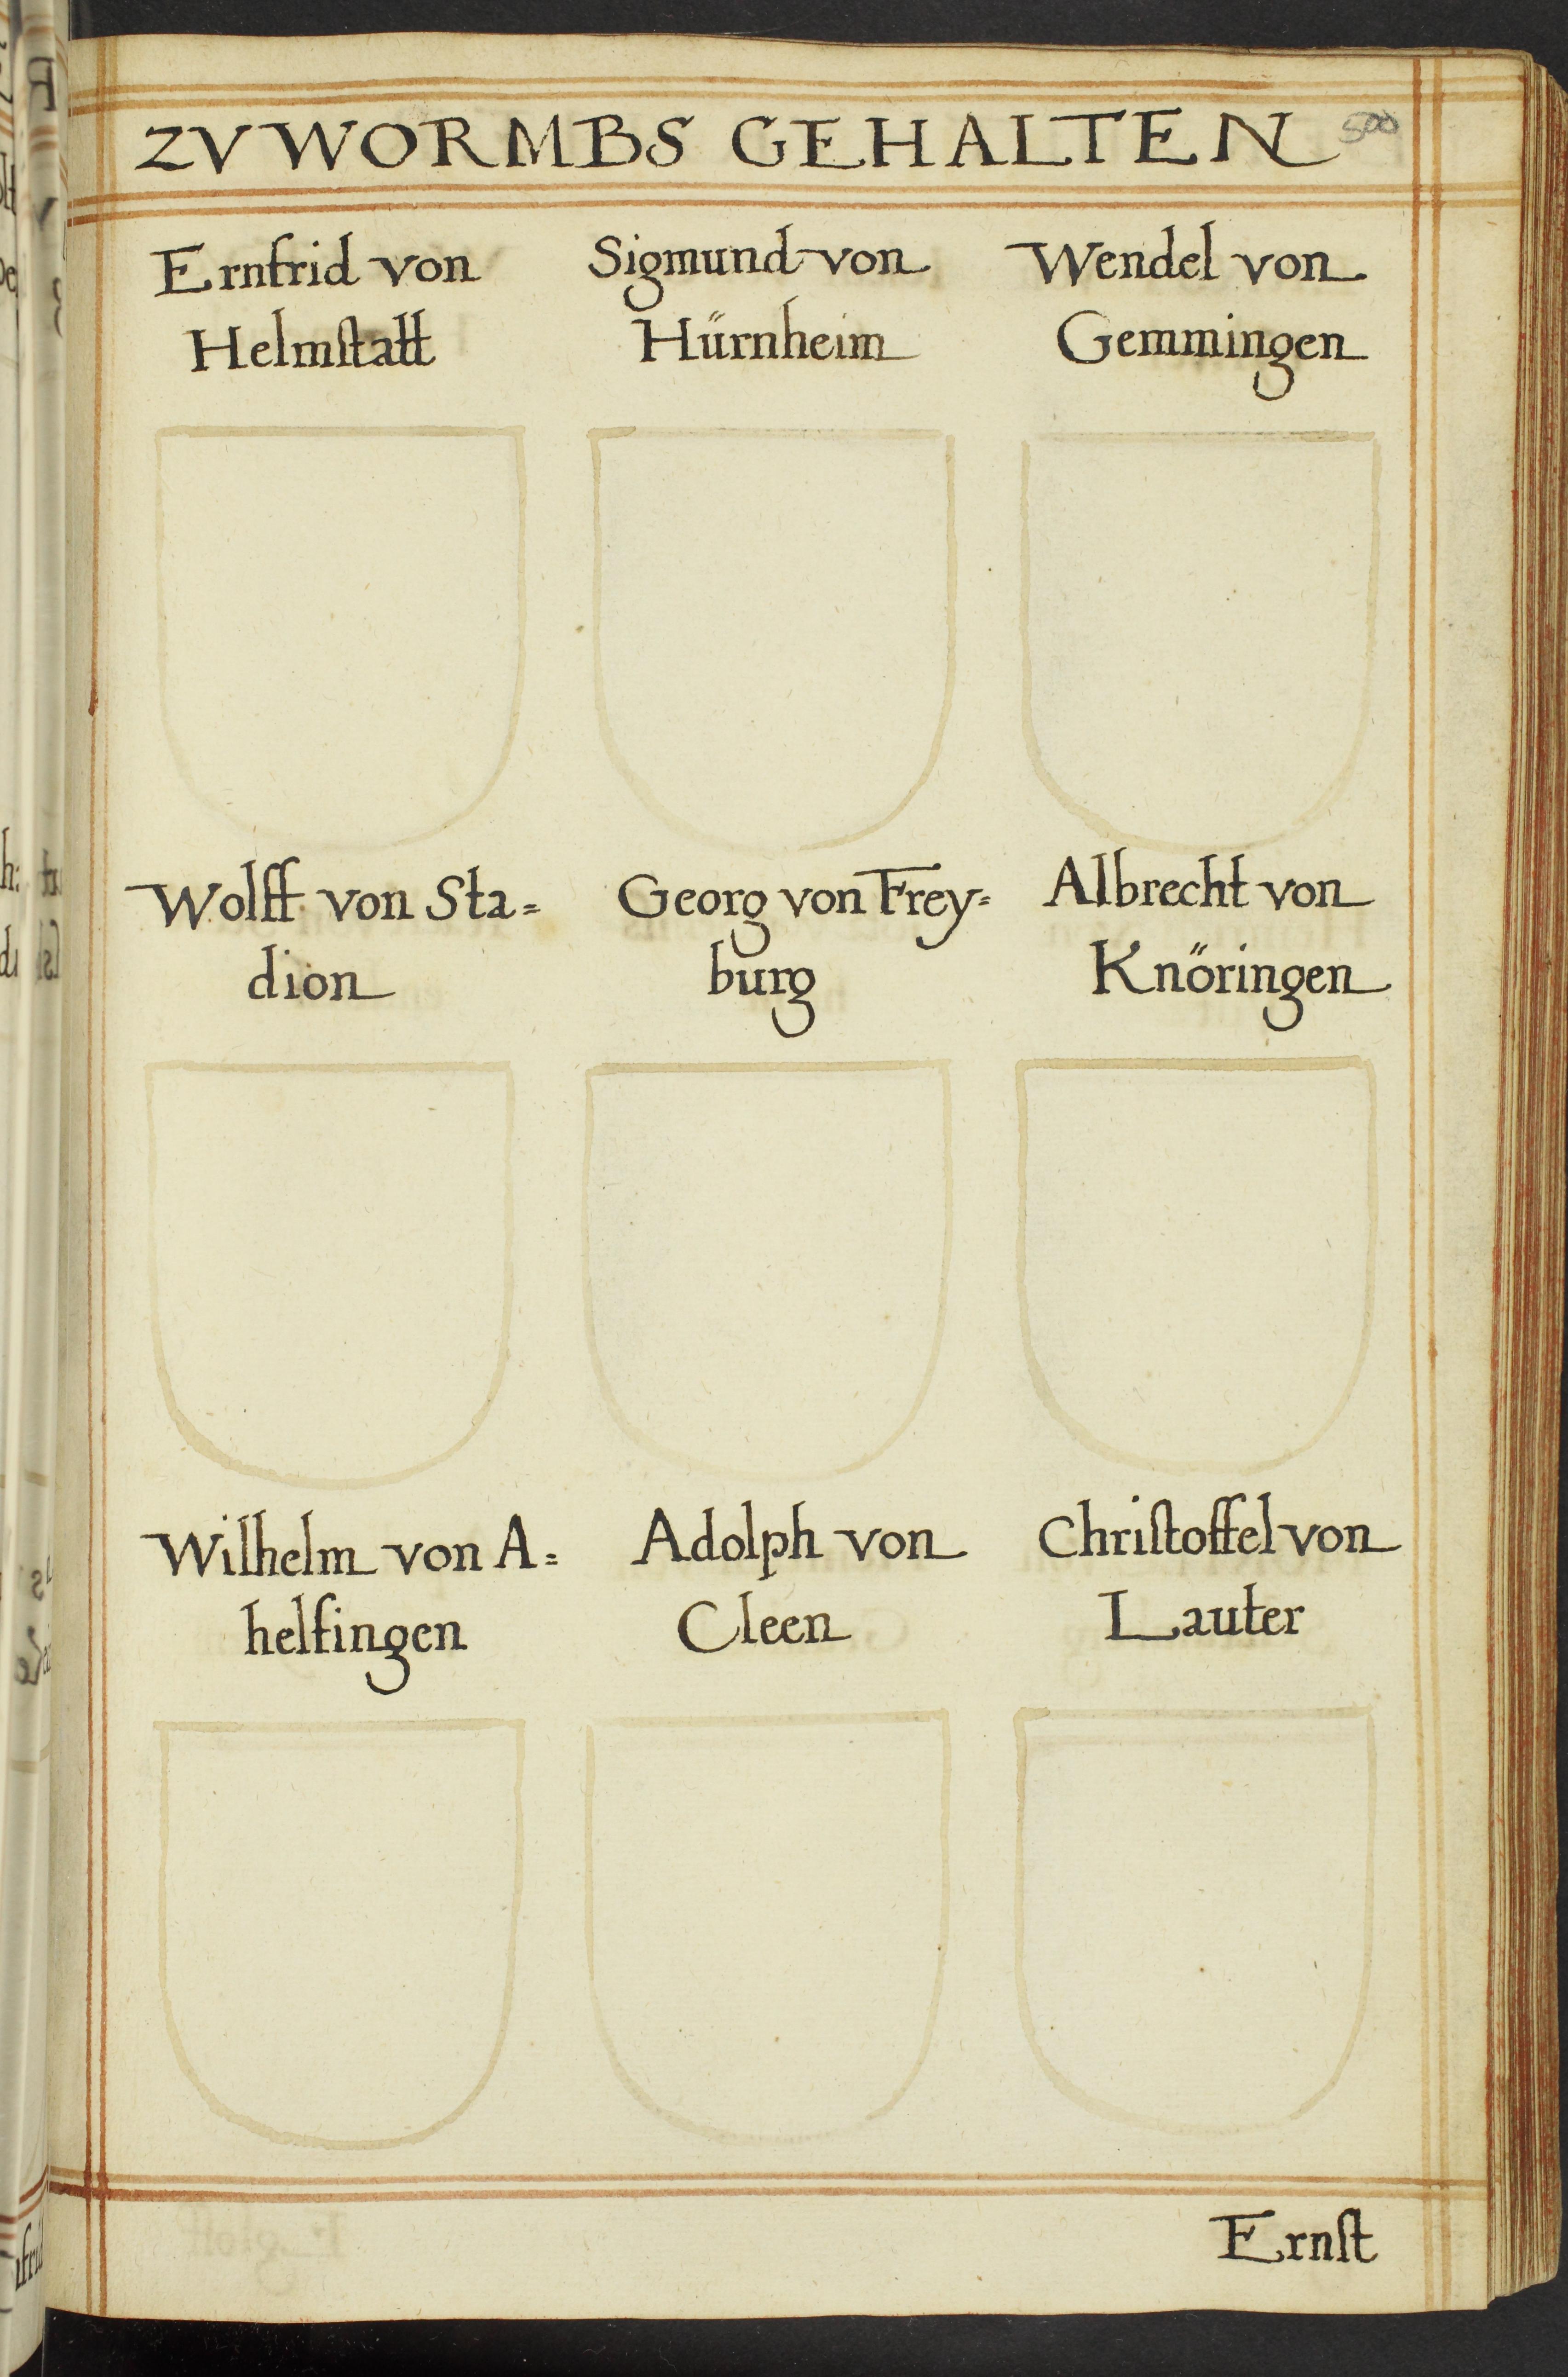 ZV WORMBS GEHALTEN 500
Ernfrid von
Helmſtatt
Sigmund von
Hürnheim
Wendel von
Gemmingen
Wolff von Sta=
dion
Georg von Frey=
burg
Albrecht von
Knöringen
Wilhelm von A=
helfingen
Adolph von
Cleen
Chriſtoffel von
Lauter
Ernſt